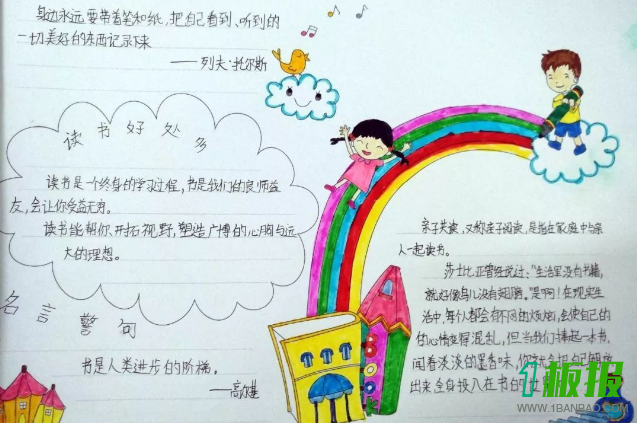 身边永远要带着笔和纸,把自己看到、听到的
一切美好的东西记录下来
——列夫·托尔斯
读书好处多
读书是一个终身的学习过程,书是我们的良师益
友,会让你受益无穷。
读书能帮你开拓视野,塑造广博的心胸与远
大的理想。
名言警句
书是人类进步的阶梯。
——高尔基
亲子共读,又称亲子阅读,是指在家庭中与亲
人一起读书。
莎士比亚曾经说过:"生活里没有书籍,
就好像鸟儿没有翅膀。"是啊!在现实生
活中,每个人都会有不同的烦恼,会使自己的
的心情变得混乱,但当我们捧起一本书,
闻着淡淡的墨香味,你就会把自己
出来全身投入在书的世界
BOOK
1板报
WWW.1BANBAO.COM